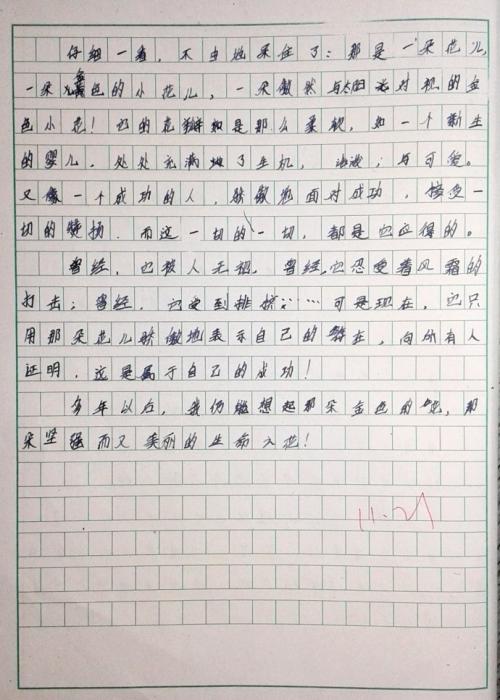 仔细一看，不由地呆住了：那是一朵花儿，
一朵金色的小花儿，一朵傲然与太阳光对视的金
色小花！它的花瓣如是那么柔软，如一个新生
的婴儿，处处充满地了生机，活泼；与可爱。
又像一个成功的人，骄傲地面对成功，接受一
切的赞扬．而这一切的一切，都是它应得的。
曾经，它被人无视，曾经，它忍受着风霜的
打击；曾经，它受到排挤……可是现在，它只
用那朵花儿骄傲地表示自己的存在，向所有人
证明，这是属于自己的成功！
多年以后，我仍然想起那朵金色的花，那
朵坚强而又美丽的生命之花！
11.21